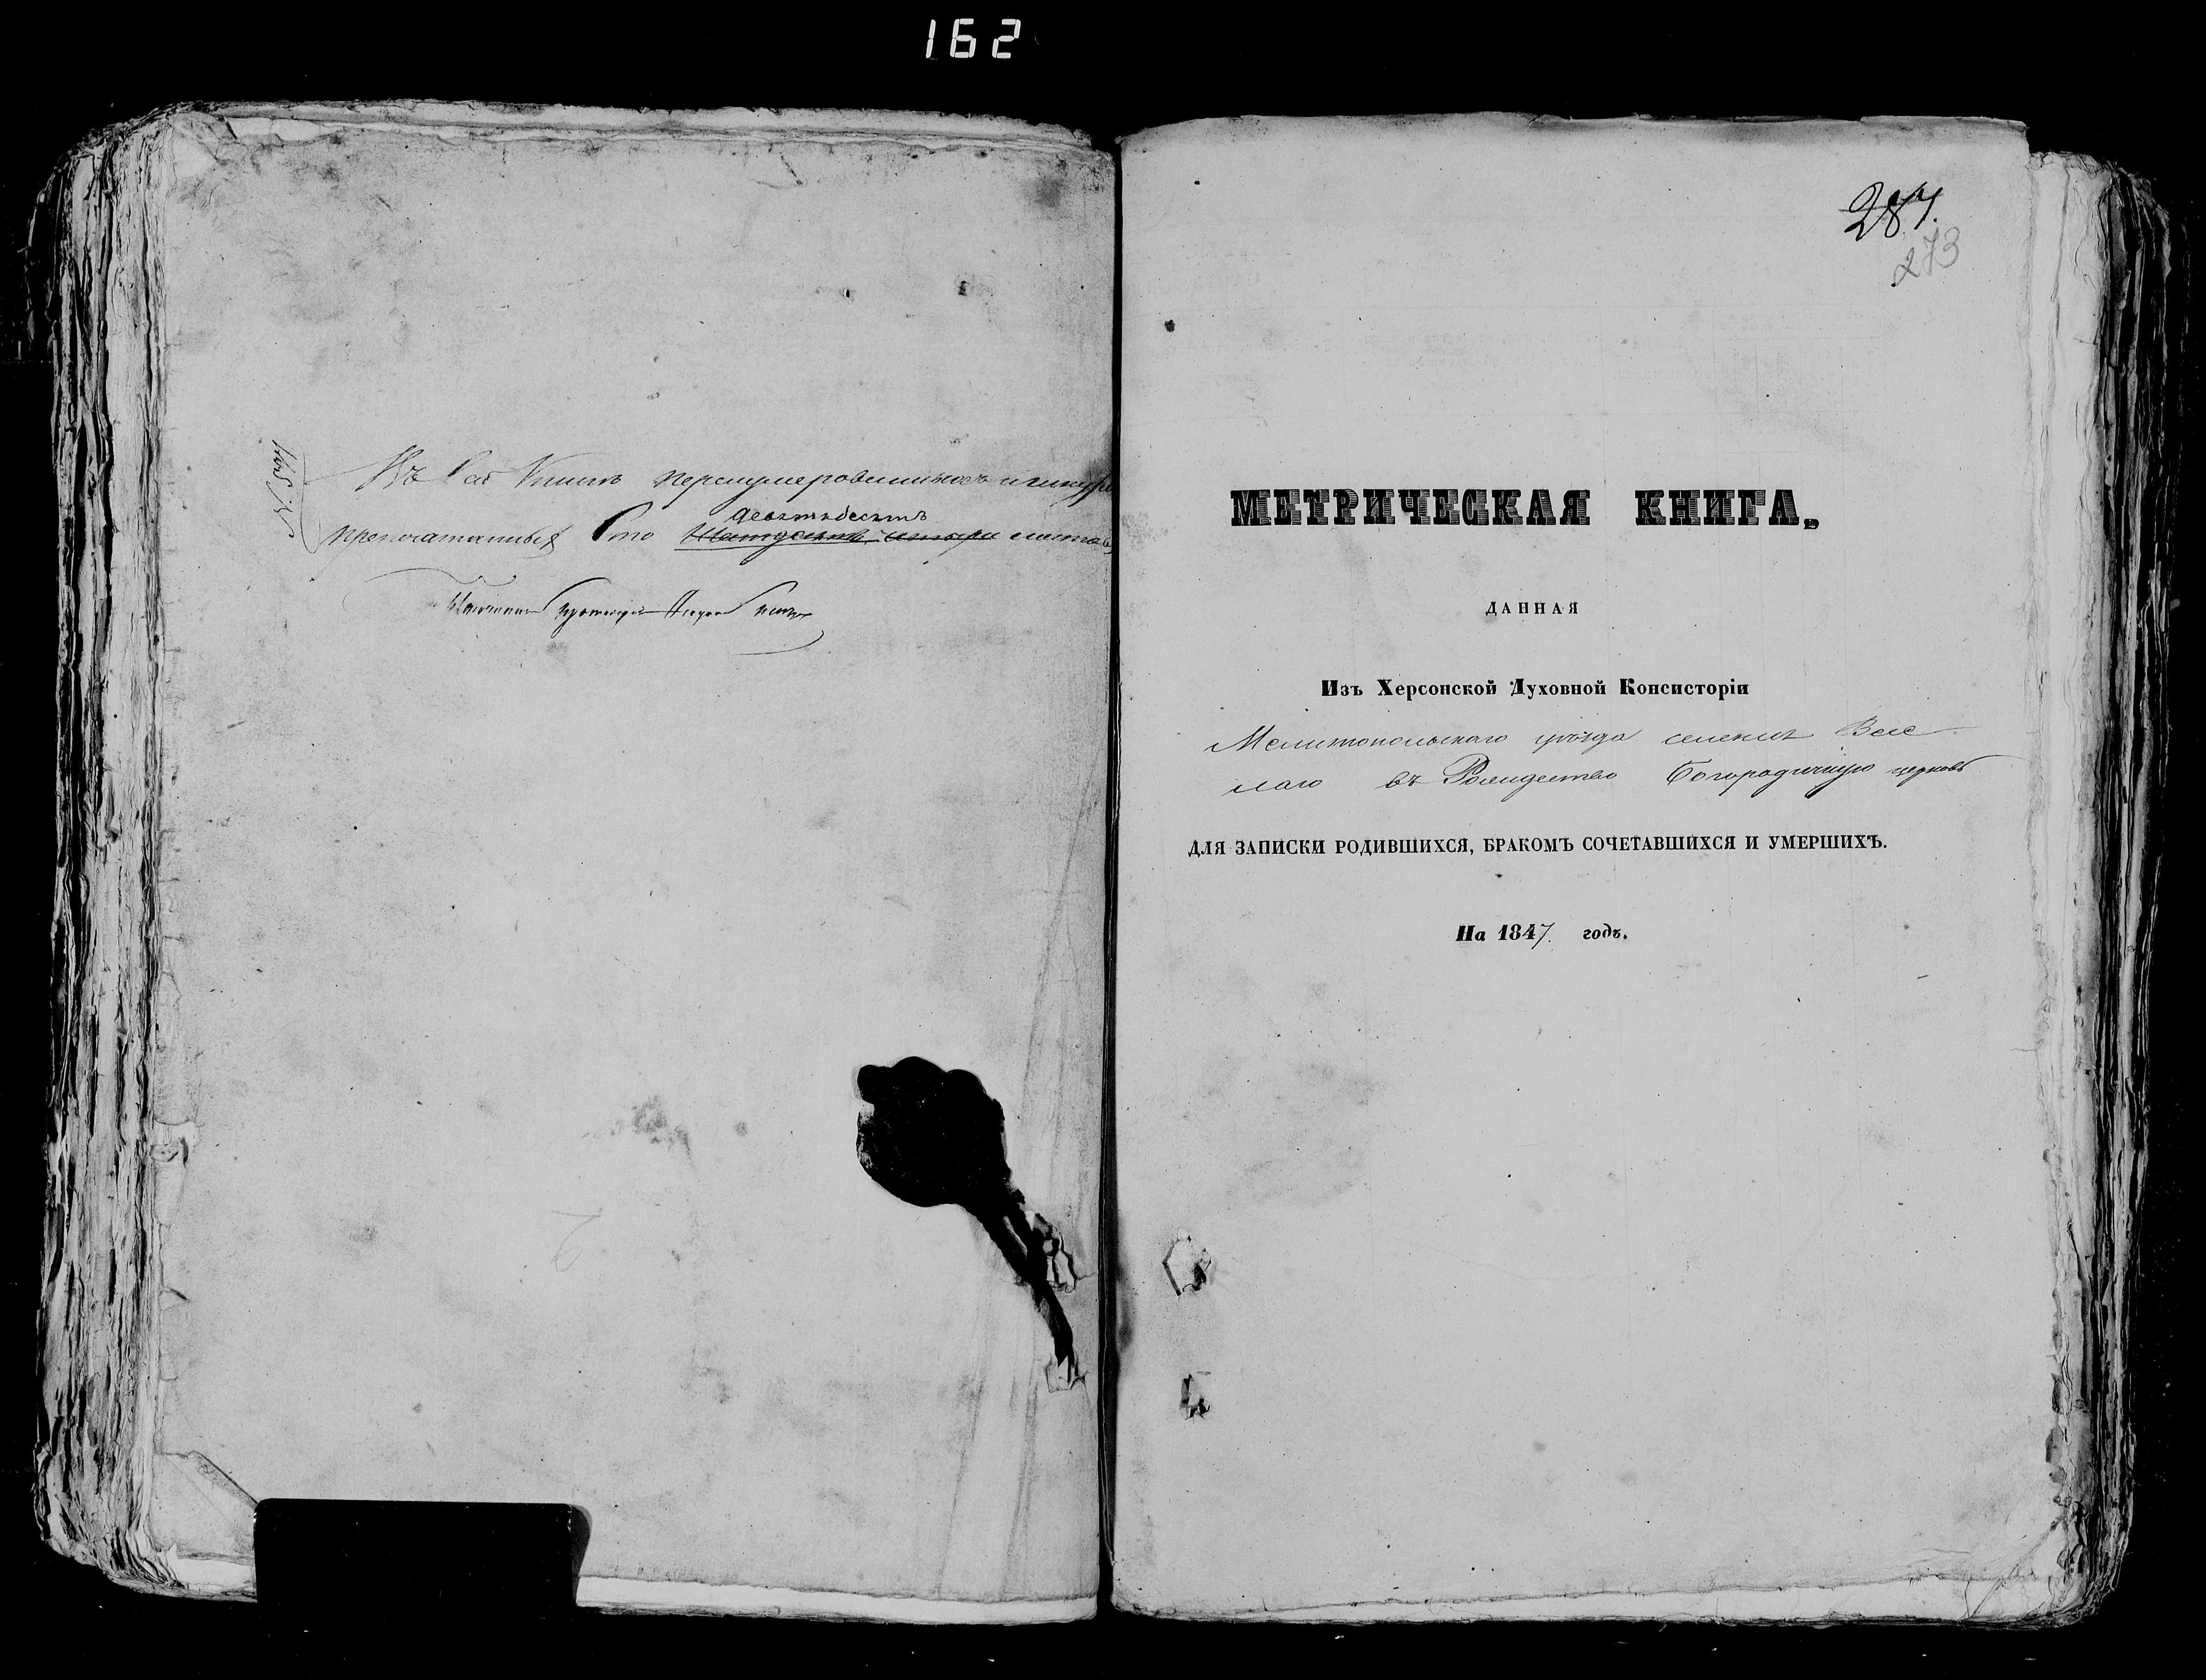 162
Въ сей Книгѣ перенумерованныхъ и шнуро
припечатанныхъ Сто девятьдесятъ листовъ
287.
273
МЕТРИЧЕСКАЯ КНИГА,
ДАННАЯ
Изъ Херсонской Духовной Консисторіи
Мелитопольскаго уѣзда селенія Весе
лаго въ Рождество Богородичную церковь
ДЛЯ ЗАПИСКИ РОДИВШИХСЯ, БРАКОМЪ СОЧЕТАВШИХСЯ И УМЕРШИХЪ.
На 1847. годъ.